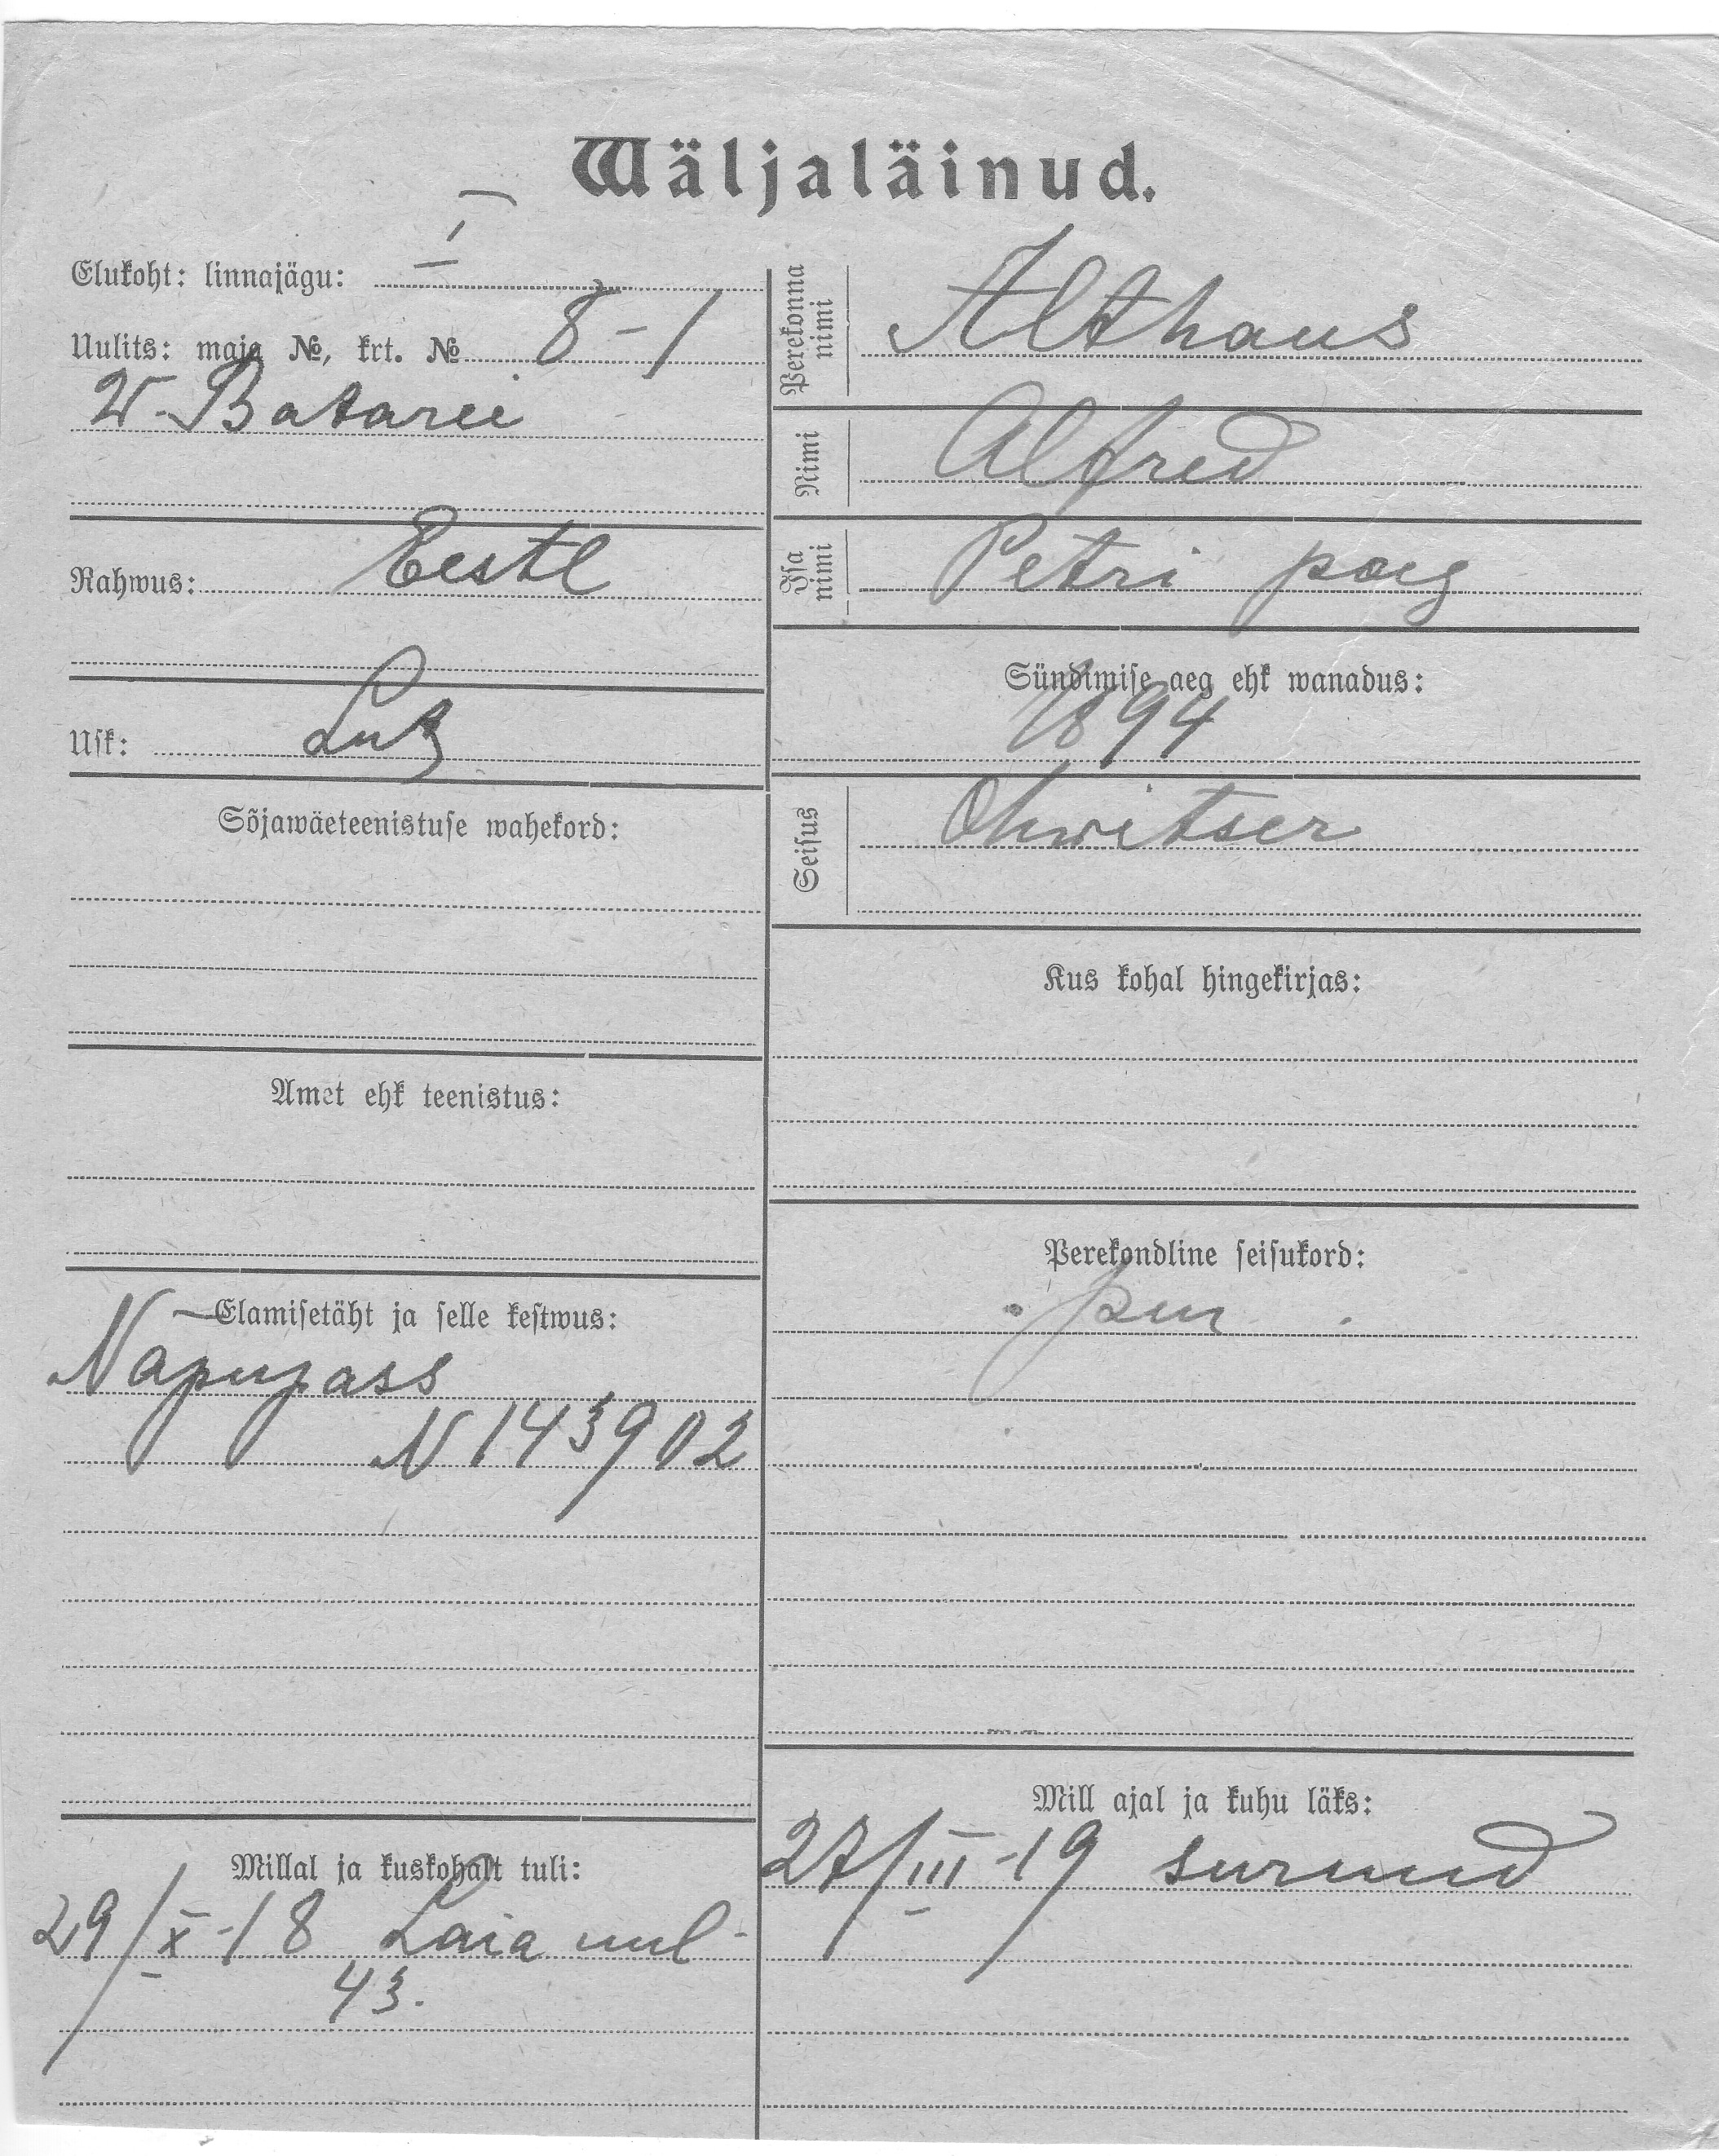 Wäljaläinud.
Elukoht: linnajägu: I
Uulits: maja №, krt. № 8-1
W. Batarei
Rahwus: Eestl
Usk: Lut
Sõjawäeteenistuse wahekord:
Amet ehk teenistus:
Elamisetäht ja selle kestwus:
Napupass
N 143902
Millal ja kuskohalt tuli:
29/X-18 Laia uul-
43.
Perekonna nimi Althaus
Nimi Alfred
Isa nimi Petri poeg
Sündimise aeg ehk wanadus:
1894
Seisus Ohwitser
Kus kohal hingekirjas:
Perekondline seisukord:
Mill ajal ja kuhu läks:
27/III-19 surnud